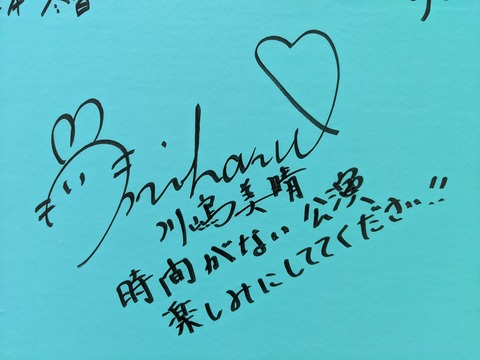 miharu
川嶋美晴
時間がない公演、
楽しみにしててください!!